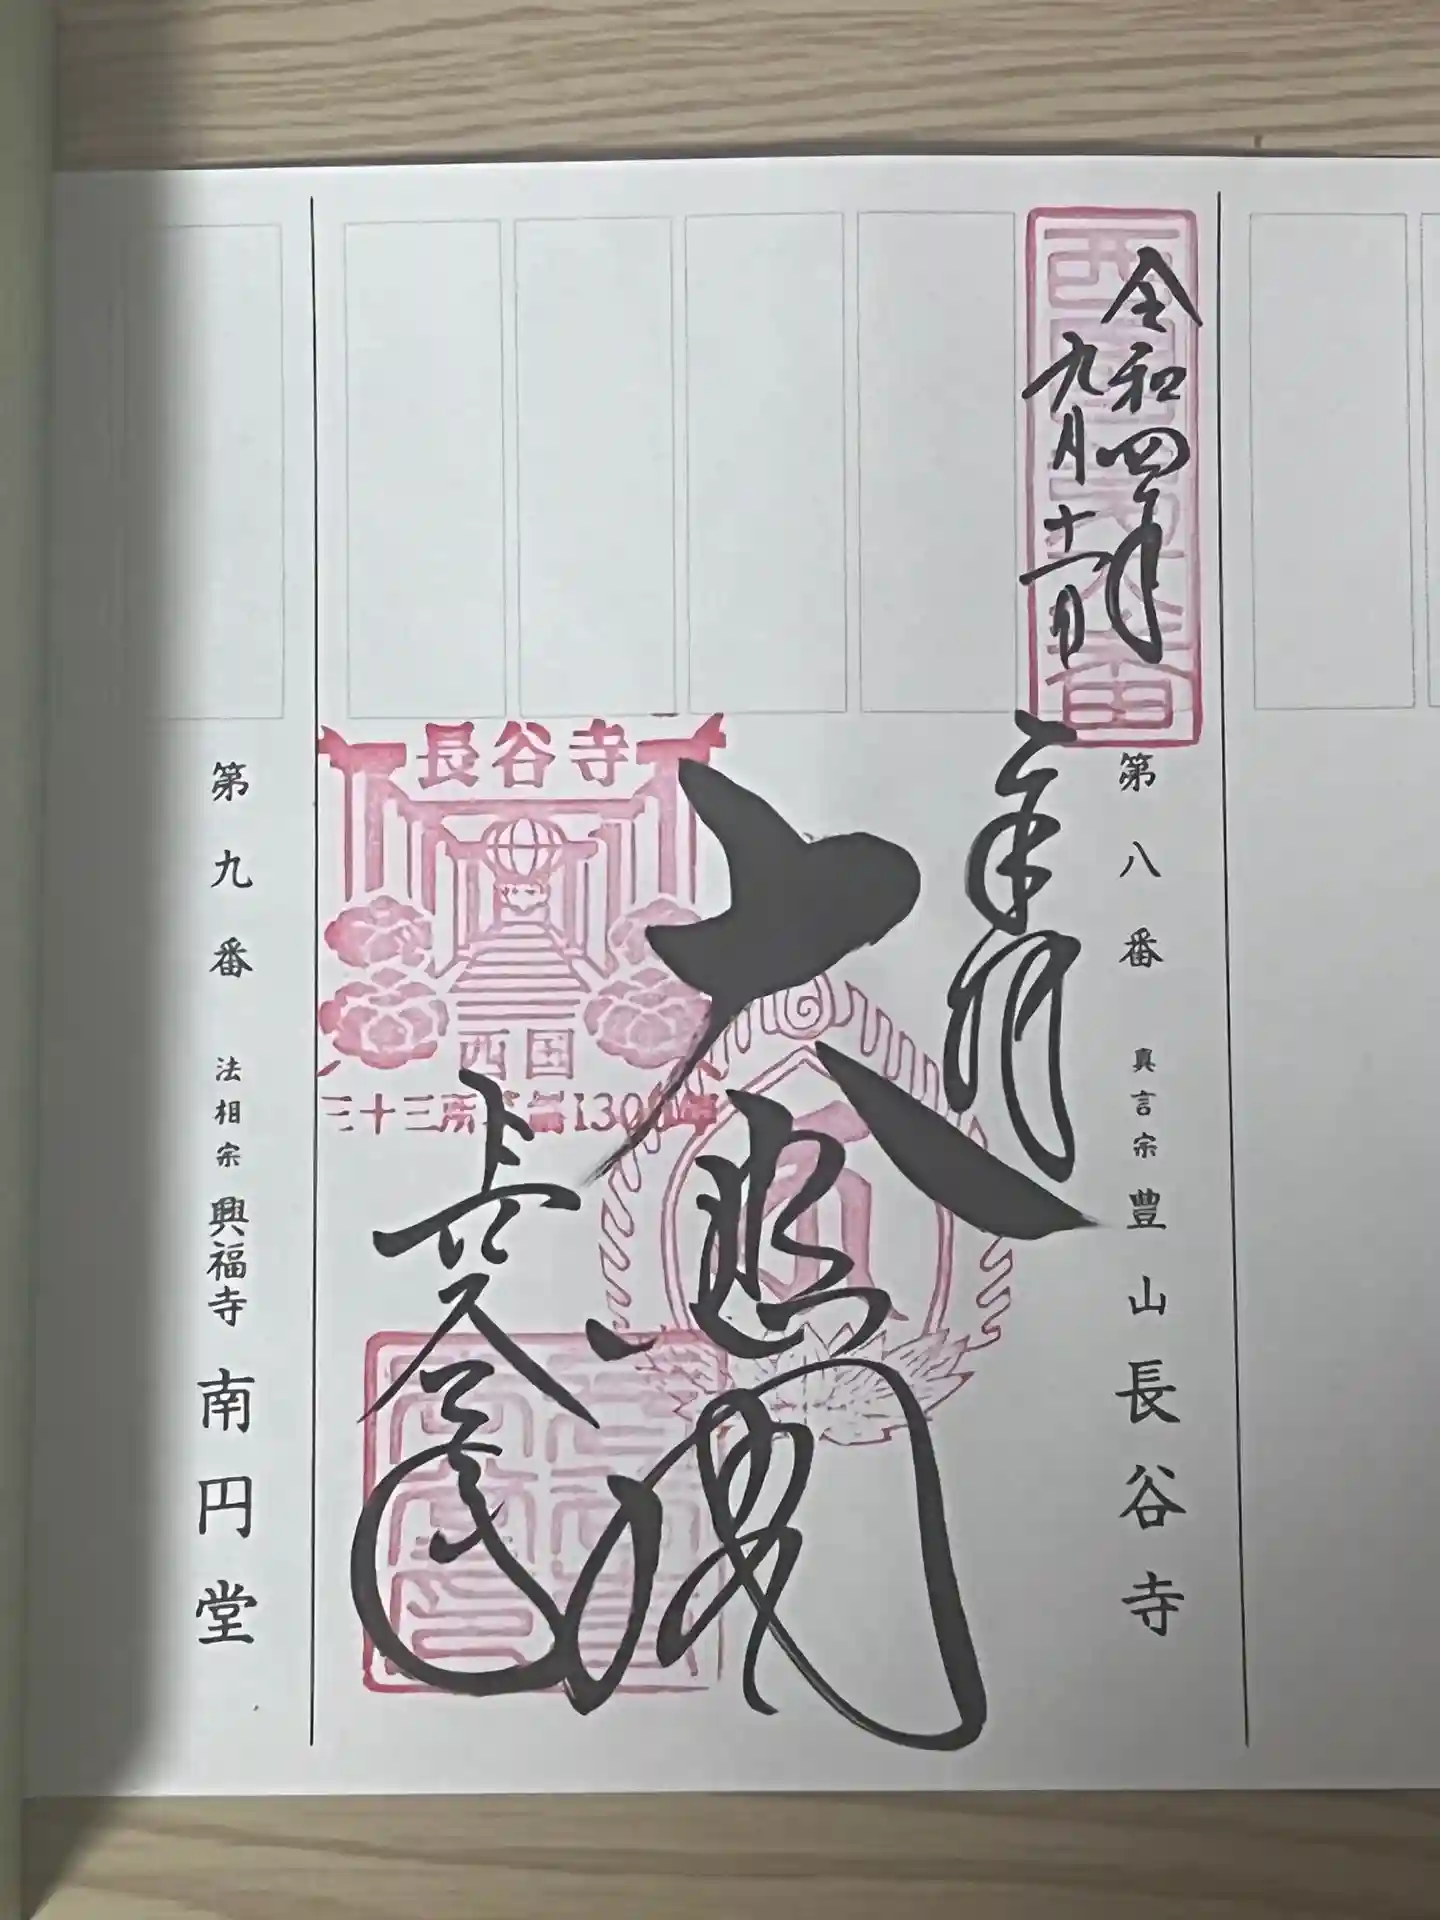 令和四年
九月十一日
第八番 真言宗 豊山長谷寺
奉拝
大悲閣
長谷寺
長谷寺
西国
三十三所草創1300年
第九番 法相宗 興福寺 南円堂